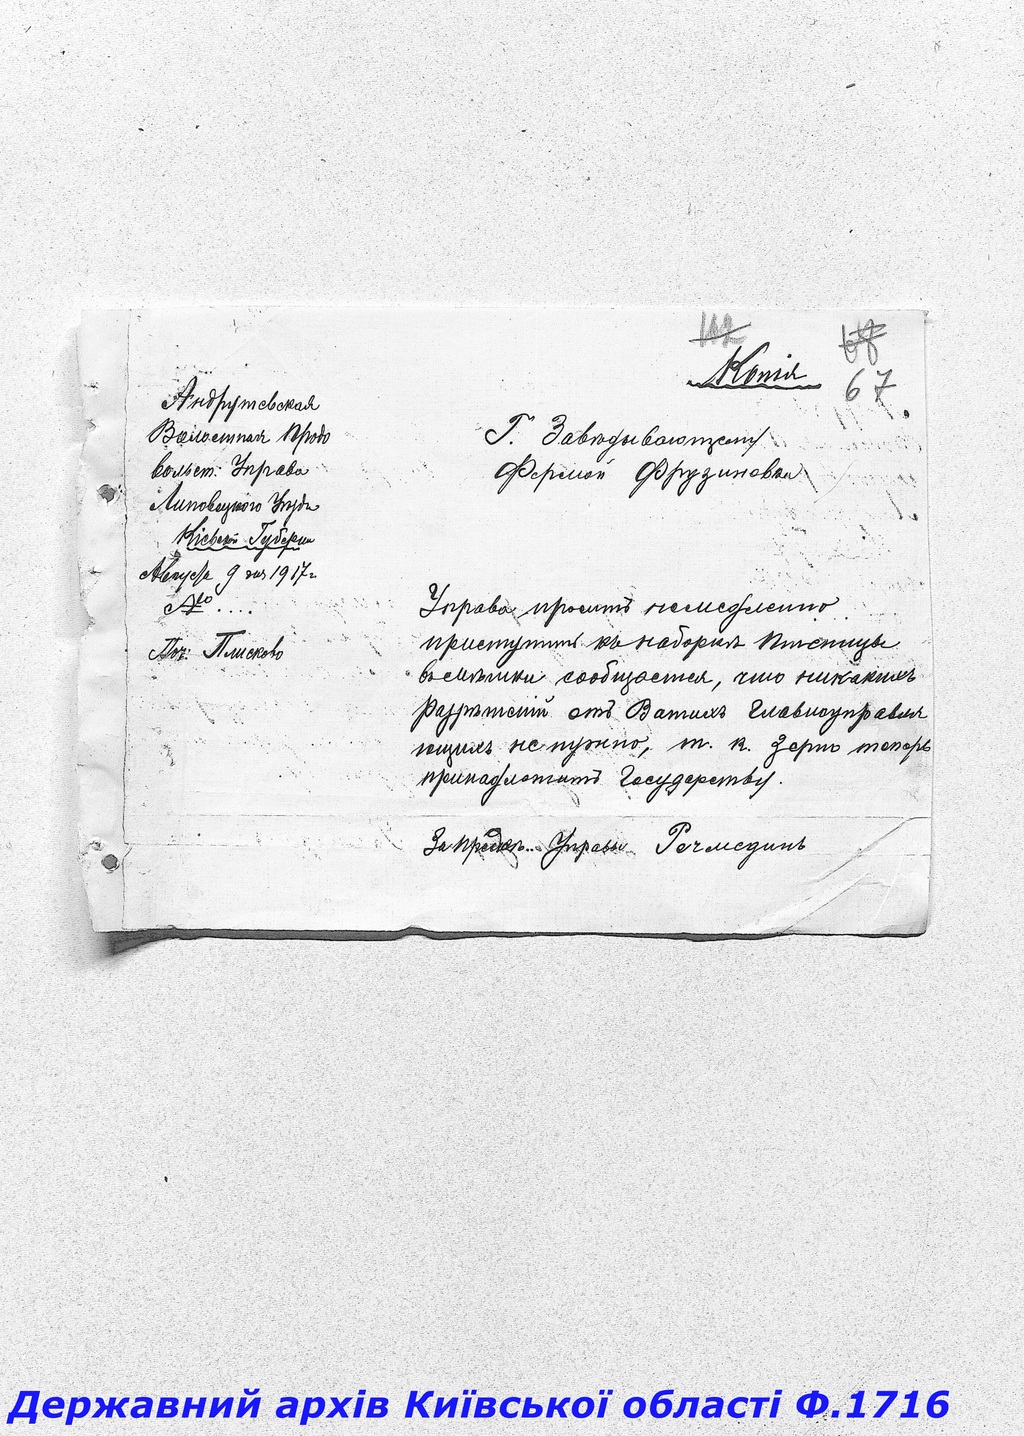 112
68
Копія
67
Андрушевская
Волостная Продо
вольст. Управа
Липовецкого Уѣзда
Кіевской Губерніи
Августа 9 дня 1917 г.
№ ....
Поч. Плисково
Г. Завѣдывающему
Фермой Фрузиновка
Управа проситъ немедленно
приступить къ наборкѣ Пшеницы
въ мѣшки сообщается, что никакихъ
Разрѣшеній отъ Вашихъ Главноуправля
ющихъ не нужно, т. к. Зерно теперь
принадлежитъ Государству.
За Предсѣд. Управы
Державний архів Київської області Ф.1716